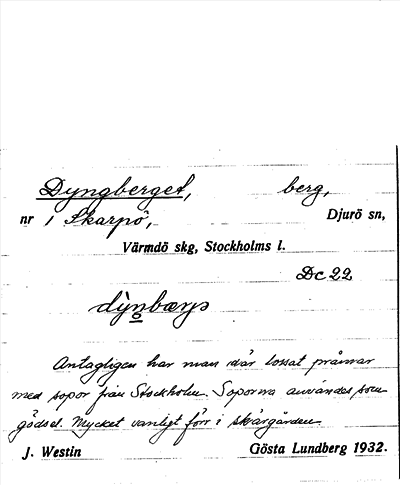 Dyngberget, berg,
nr 1 Skarpö, Djurö sn,
Värmdö skg, Stockholms l.
Dc 22
Antagligen har man där lossat pråmar
med sopor från Stockholm. Soporna användes som
gödsel. Mycket vanligt förr i skärgården.
J. Westin Gösta Lundberg 1932.